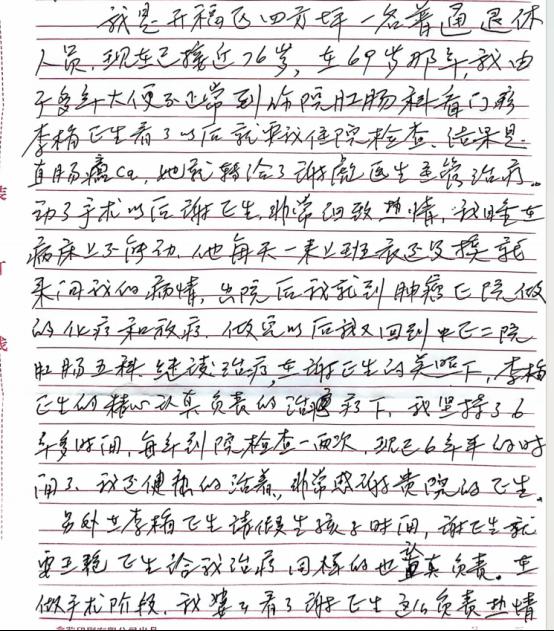 我是开福区四方坪一名普通退休
人员，现在已接近76岁，在69岁那年，我由
于多年大便不正常到你院肛肠科看门诊
李梅医生看了以后就建议住院检查、结果是
直肠癌Ca，她就转给了谢彪医生主管治疗。
动了手术以后谢医生，非常细致热情，我睡在
病床上不能动，他每天一来上班衣还没换就
来问我的病情，出院后我就到肿瘤医院做
的化疗和放疗。做完以后我又回到中医二院
肛肠五科继续治疗，在谢医生的关照下，李梅
医生的精心认真负责的治疗下，我坚持了6
年多时间，每年到院检查一两次，现已6年半的时
间了，我还健热的活着，非常感谢贵院的医生。
另外在李梅医生请假生孩子时间，谢医生就
要王艳医生给我治疗同样的也认真负责。在
做手术阶段，我婆婆看了谢医生这么负责热情
装
订
线